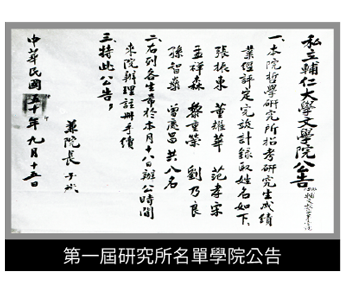 私立輔仁大學文學院公告
一、本院哲學研究所招考研究生成績
業經評定完設計錄取姓名如下
張振東 董耀華 范孝宗
孟祥森 黎重榮 劉乃良
孫智燊 曾慶昌 共八名
二、右列各生希於本月十八日辦公時間
來院辦理註冊手續
三、特此公告
兼院長
中華民國五十年九月十五日
第一屆研究所名單學院公告